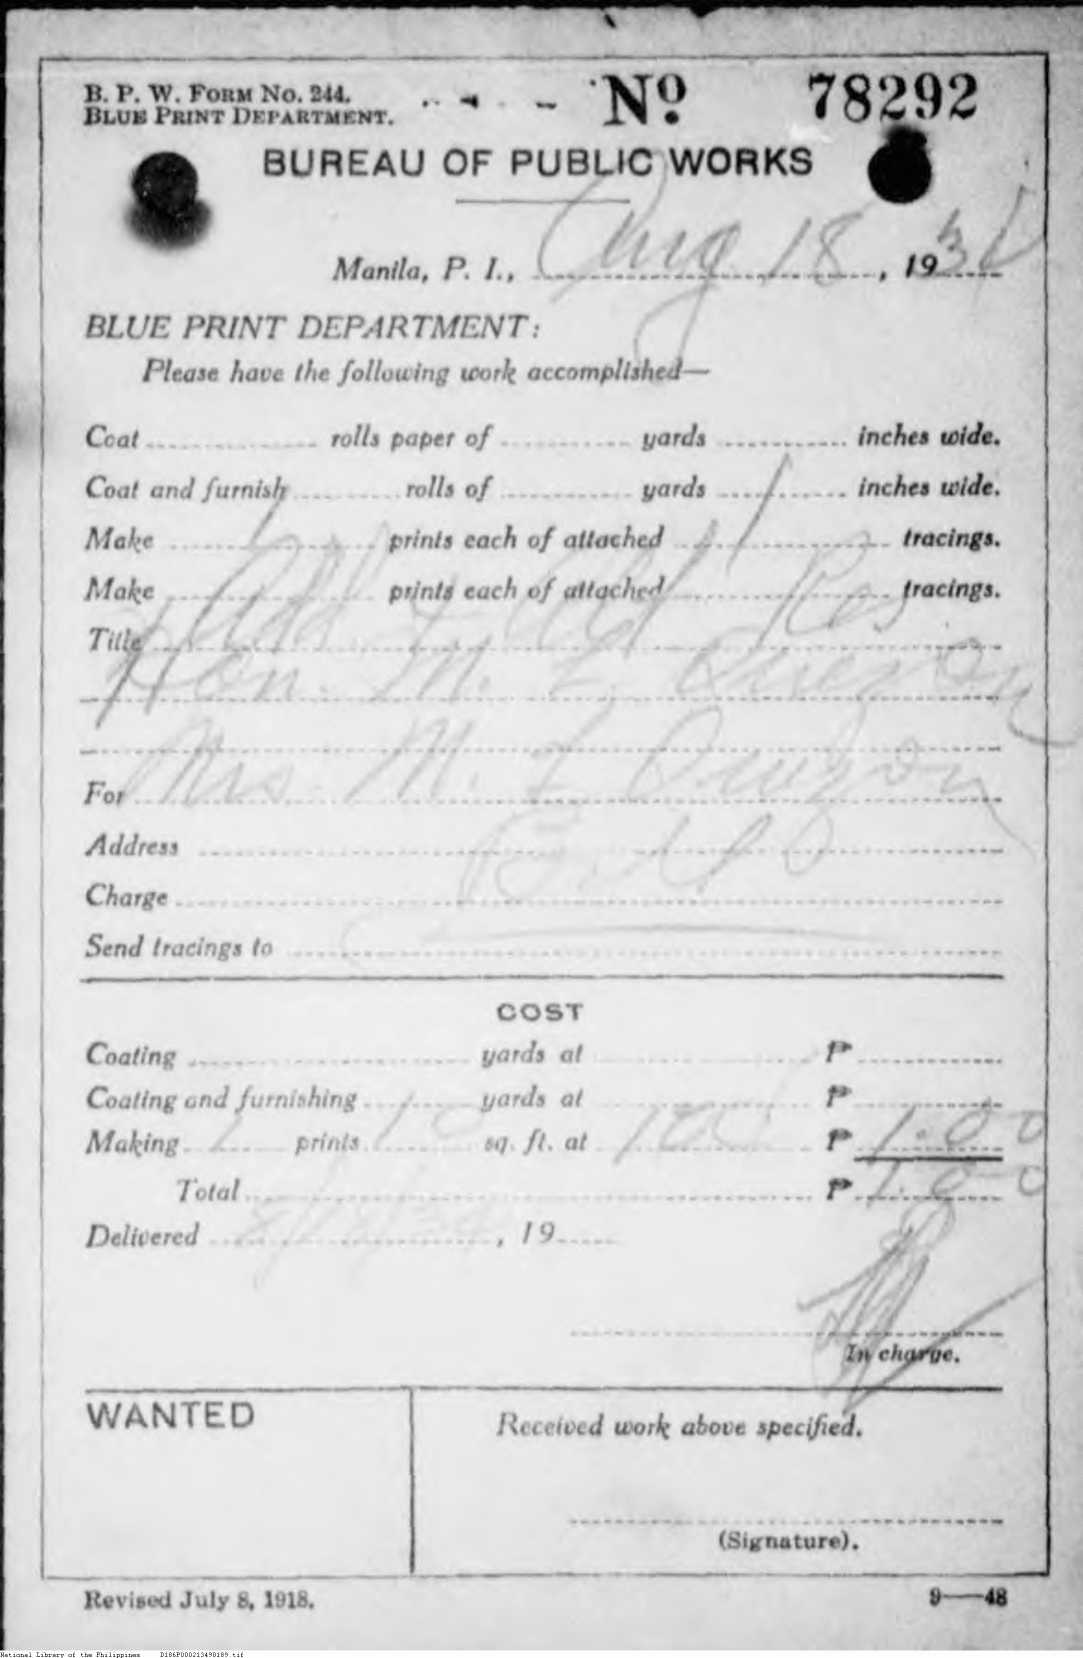 B. P. W. FORM NO. 244.
BLUE PRINT DEPARTMENT.
No. 78292
BUREAU OF PUBLIC WORKS
Manila, P. I., Aug 18, 1934
BLUE PRINT DEPARTMENT:
Please have the following work accomplished—
Coat rolls paper of yards inches wide.
Coat and furnish rolls of yards inches wide.
Make prints each of attached 1 tracings.
Make prints each of attached tracings.
Title Add. to Old Res
Hon. M. L. Quezon
Mrs. M. L. Quezon
For
Address
Charge
Send tracings to
COST
Coating yards at ₱
Coating and furnishing yards at ₱
Making 1 prints 10 sq. ft. at 10 ₱ 1.00
Total ₱ 1.00
Delivered , 19
In charge.
WANTED
Received work above specified.
(Signature).
Revised July 8, 1918.
9—48
National Library of the Philippines